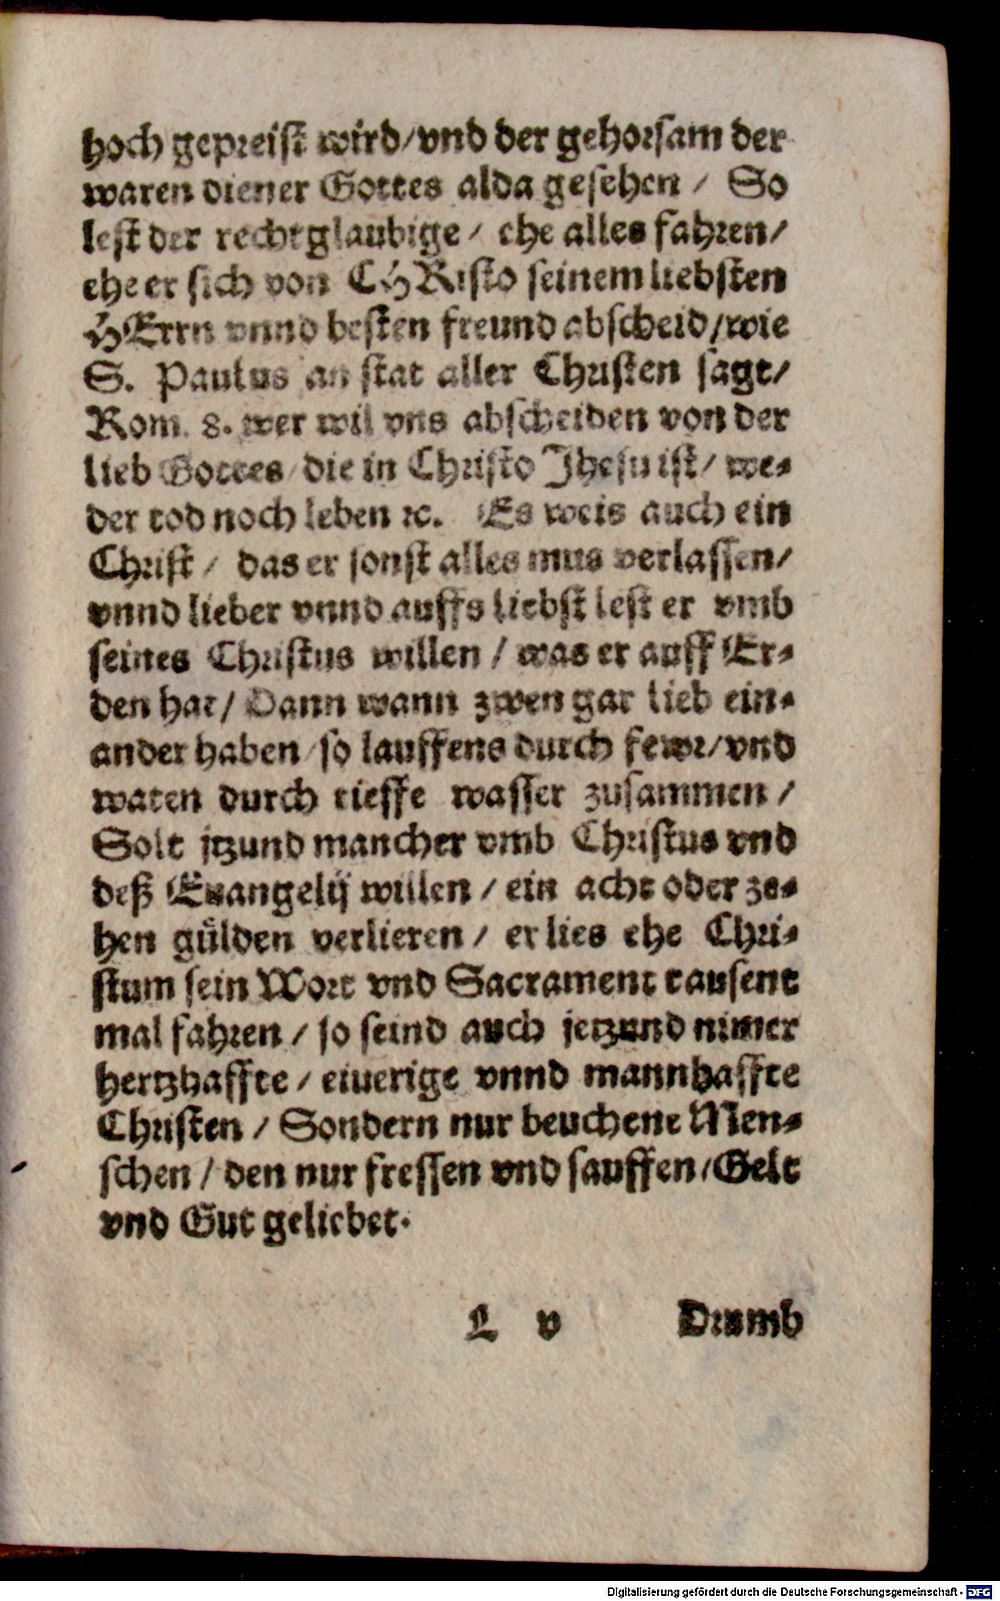 hoch gepreist wird/vnd der gehorsam der
waren diener Gottes alda gesehen / So
lest der rechtglaubige / ehe alles fahren/
ehe er sich von CHRisto seinem liebsten
HErrn vnnd besten freund abscheid/wie
S. Paulus an stat aller Christen sagt/
Rom. 8. wer wil vns abscheiden von der
lieb Gottes/die in Christo Jhesu ist/ we-
der tod noch leben ꝛc. Es weis auch ein
Christ / das er sonst alles mus verlassen/
vnnd lieber vnnd auffs liebst lest er vmb
seines Christus willen / was er auff Er-
den hat/ Dann wann zwen gar lieb ein-
ander haben/so lauffens durch fewr/vnd
waten durch tieffe wasser zusammen /
Solt jtzund mancher vmb Christus vnd
deß Euangelij willen / ein acht oder ze-
hen gülden verlieren / er lies ehe Chri-
stum sein Wort vnd Sacrament tausent
mal fahren / so seind auch jetzund nimer
hertzhaffte / eiuerige vnnd mannhaffte
Christen / Sondern nur beuchene Men-
schen / den nur fressen vnd sauffen/Gelt
vnd Gut geliebet.
L v Drumb
Digitalisierung gefördert durch die Deutsche Forschungsgemeinschaft - DFG